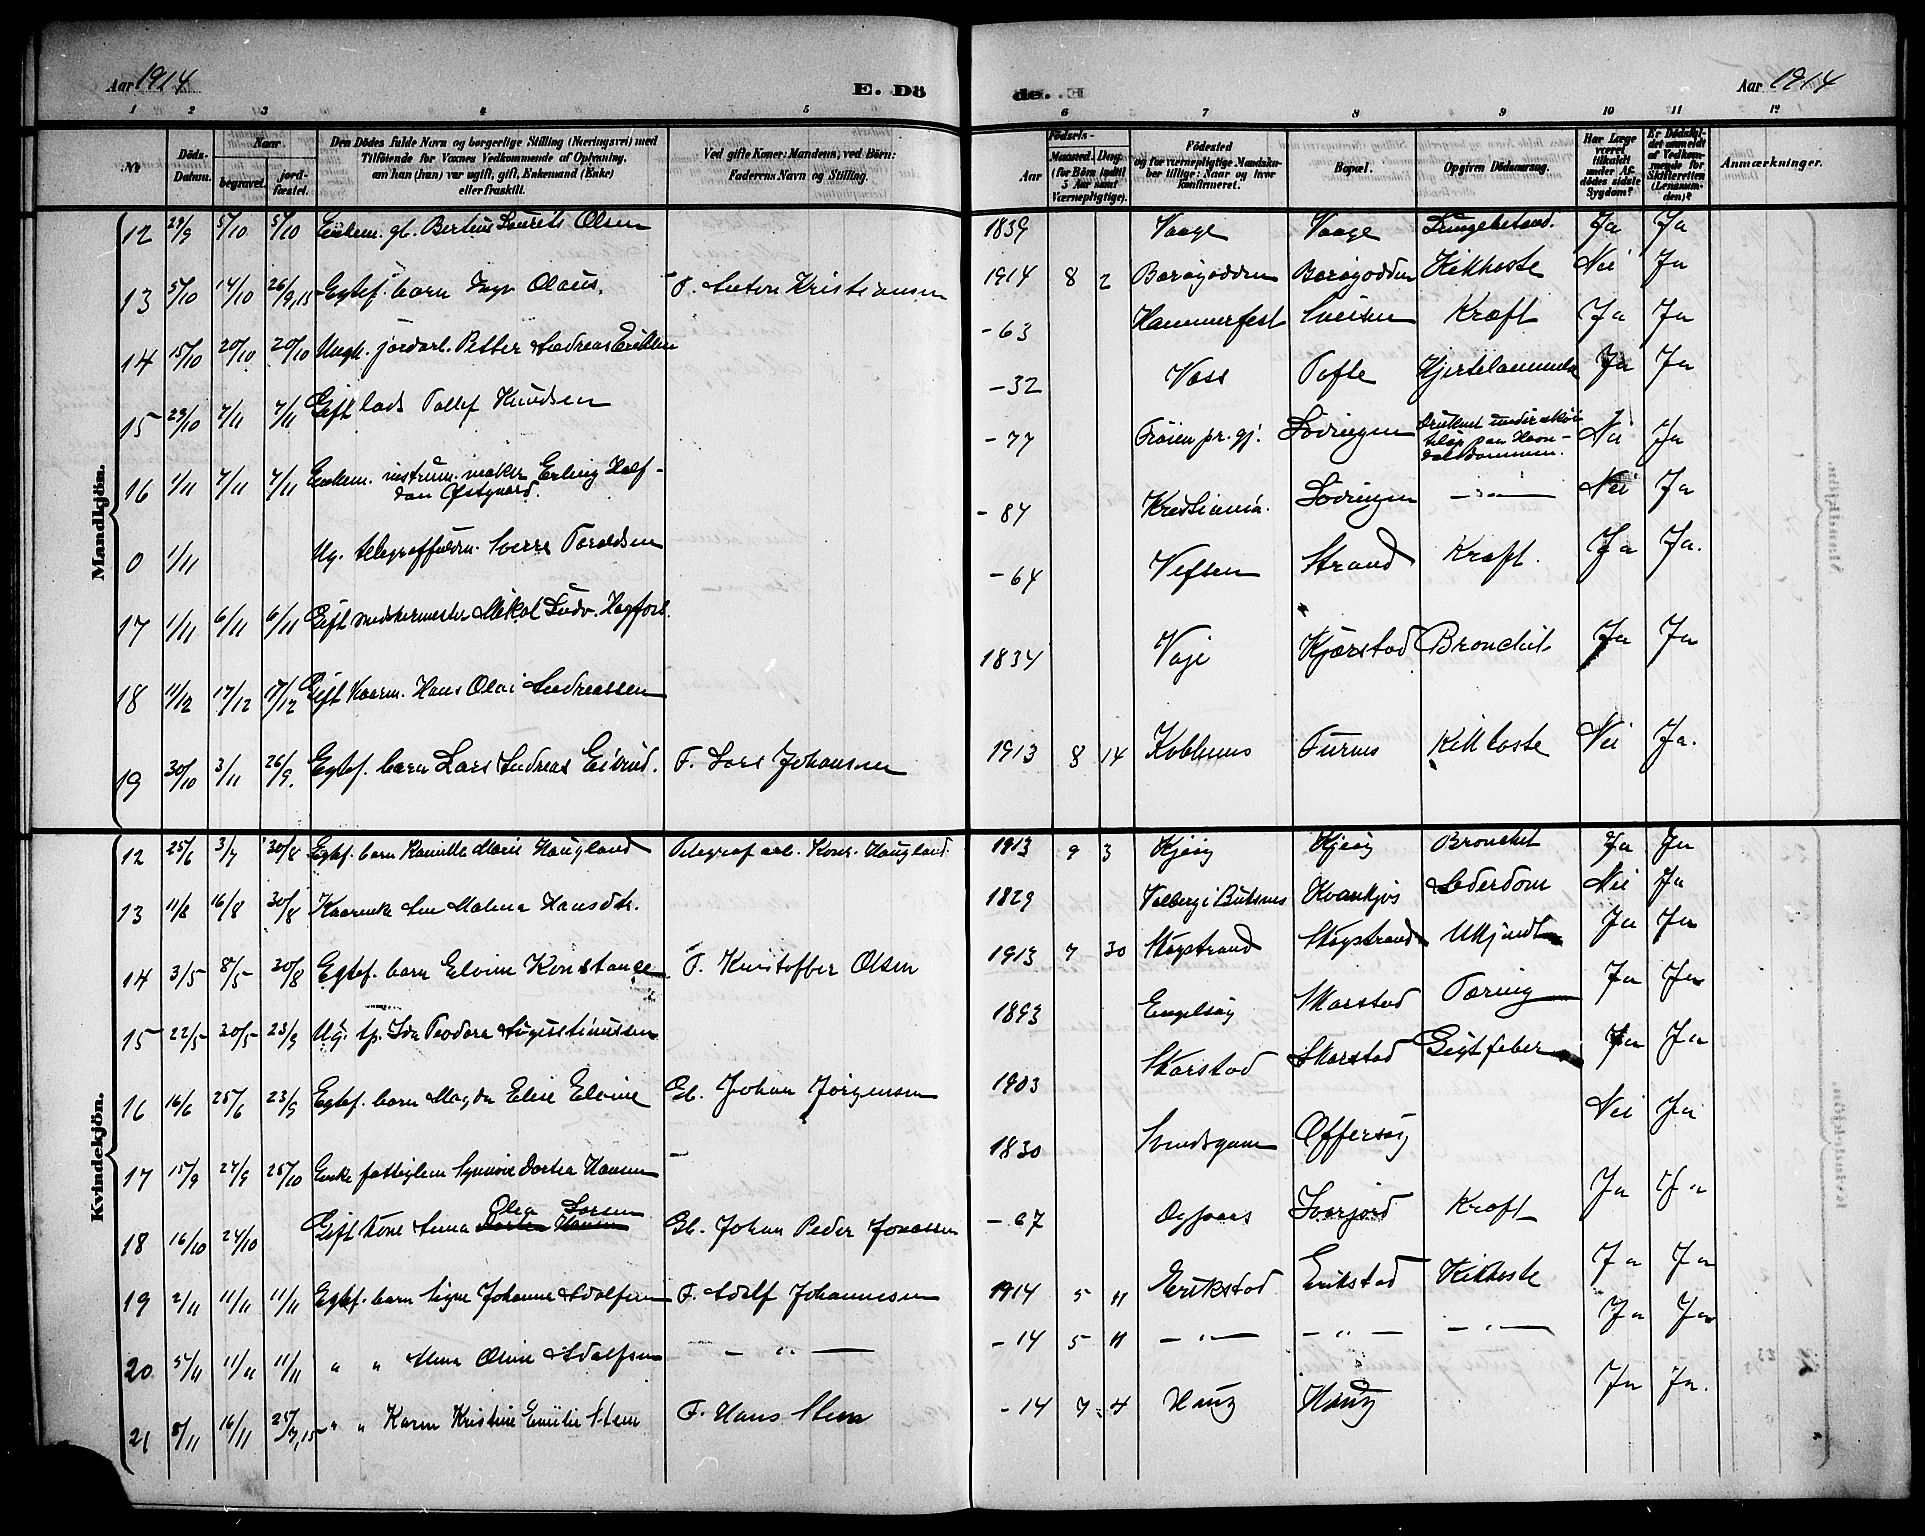 Aar 1914
E. Dö
de.
Aar 1914
1 2 3 4 5 6 7 8 9 10 11 12
No
Döds-Datum.
Naar
begravet.
jord-fæstet.
Den Dödes fulde Navn og borgerlige Stilling (Næringsvei) med
Tilföiende for Voxnes Vedkommende af Oplysning,
om han (hun) var ugift, gift, Enkemand (Enke)
eller fraskilt.
Ved gifte Koner: Mandens, ved Börn:
Faderens Navn og Stilling.
Födsels-
Aar
Maaned. Dag.
(for Börn indtil
5 Aar samt
Værnepligtige).
Födested
og for værnepligtige Mandskaber
tillige: Naar og hvor
konfirmeret.
Bopæl.
Opgiven Dödsaarsag.
Har Læge
været
tilkaldt
under Afdödes
sidste
Sygdom?
Er Dödsfaldet
anmeldt
af Vedkommende
for
Skifteretten
(Lensmanden)?
Anmærkninger.
Mandkjön.
12 29/9 5/10 5/10 Enkem. gb. Bertius Laurits Olsen 1839 Vaage Vaage Lungebetænd. Ja Ja
13 5/10 14/10 26/9,15 Egtef. barn Inge Olaus. F. Anton Kristiansen 1914 8 2 Barøyodden Barøyodden Kikhoste Nei Ja
14 15/10 20/10 20/10 Ungk. jordarb. Petter Andreas Eriksen -63 Hammerfest Sveisen Kræft Ja Ja
15 29/10 7/11 7/11 Gift lods Tollef Knudsen -32 Vass Tofte Hjertelammelse Ja Ja
16 1/11 7/11 7/11 Enkem. instrum.maker Erling Half-
dan Østgaard. -77 Frøien pr. gj. Lødingen Druknet under
Nei Ja
0 1/11 Ug. telegraffuldm. Sverre Toraldsen -84 Kristiania. Lødingen — " — Nei Ja
17 1/11 6/11 6/11 Gift snedkermester Mikal Ludv. Hagfors. -64 Vefsen Strand Kræft. Ja Ja.
18 11/12 17/12 17/12 Gift Kaarm. Hans Olai Andreassen 1834 Vaje Kjærstad Bronchit. Ja Ja
19 30/10 3/11 26/9. Egtef. barn Lars Andreas Eivind. F. Lars Johansen 1913 8 14 Kobbenes Furnes Kikhoste Nei Ja.
Kvindekjön.
12 25/6 3/7 30/8 Egtef. barn Kamilla Marie Haugland Telegrafarb. Konr. Haugland 1913 9 3 Kjeøy Kjeøy Bronchit Ja Ja
13 11/8 16/8 30/8 Kaarenke Ane Malena Hansdtr. 1829 Valberg i Buksnes Kvankjøs Alderdom Nei Ja
14 3/5 8/5 30/8 Egtef. barn Elvine Konstanse F. Kristoffer Olsen 1913 7 30 Skogstrand Skogstrand Ukjendt Ja Ja
15 22/5 30/5 23/9 Ug. tp. Ida Teodora Augustinussen 1893 Engeløy Skarstad Tæring Ja Ja
16 16/6 25/6 23/9 Egtef. barn Magda Elise Elvine Gb. Johan Jørgensen 1903 Skarstad Skarstad Gigtfeber Ja Ja
17 15/9 24/9 25/10 Enke fattiglem Synnøve Dortea Hansen — 1830 Sundsgam Offersøy Nei Ja
18 16/10 24/10 Gift kone Anna Olea Larsen Gb. Johan Peder Jonassen -67 Ivarjord Kræft Ja Ja
19 2/11 11/11 11/11 Egtef. barn Signe Johanne Adolfsen F. Adolf Johannesen 1914 5 11 Erikstad Erikstad Kikhoste Ja Ja
20 5/11 11/11 11/11 " " Alma Oline Adolfsen — " — -14 5 11 — " — — " — — " — Ja Ja
21 8/11 16/11 25/7,15 " " Karen Kristine Emilie Steen F. Hans Steen -14 7 4 Hauy Hauy Ja Ja.